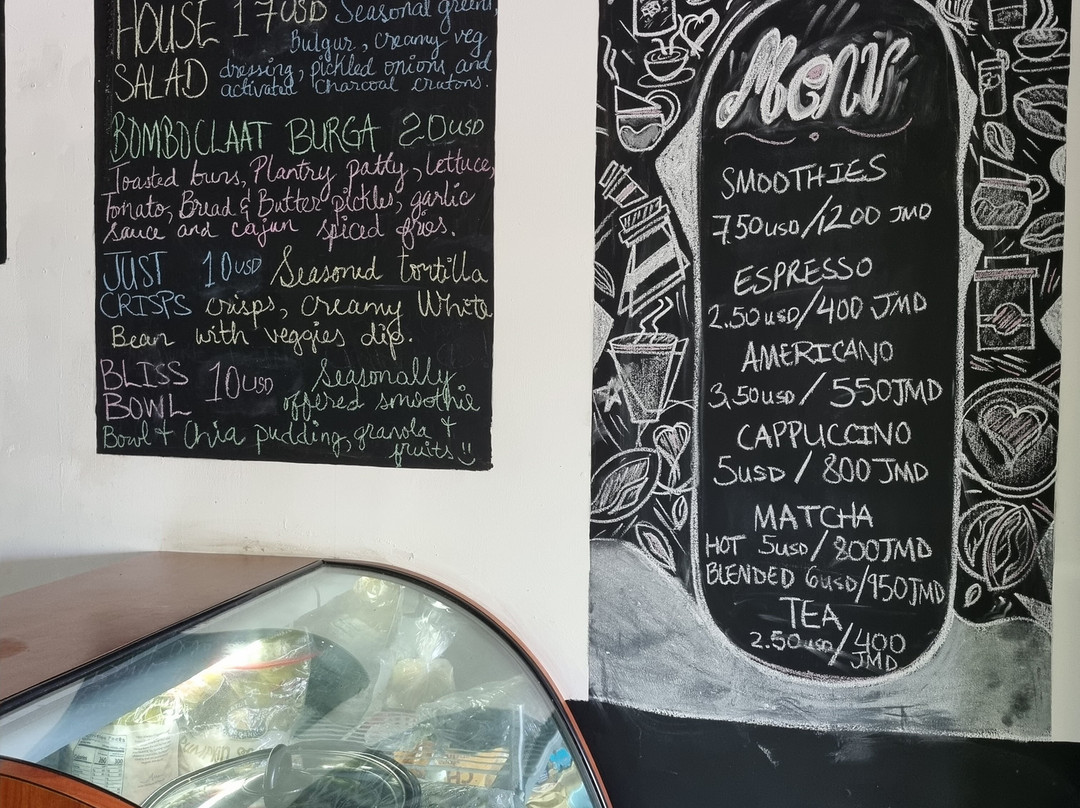 HOUSE 17USD Seasonal greens,
Bulgur, creamy veg
SALAD dressing, pickled onions and
activated charcoal crutons.
BOMBOCLAAT BURGA 20USD
Toasted buns, Plantry patty, lettuce,
Tomato, Bread & Butter pickles, garlic
sauce and cajun spiced fries.
JUST 10USD Seasoned tortilla
CRISPS crisps, creamy White
Bean with veggies dip.
BLISS 10USD Seasonally
BOWL offered smoothie
Bowl + Chia pudding, granola +
fruits
Menu
SMOOTHIES
7.50USD/1200 JMD
ESPRESSO
2.50USD/400 JMD
AMERICANO
3.50USD/550JMD
CAPPUCCINO
5USD/800 JMD
MATCHA
HOT 5USD/800JMD
BLENDED 6USD/950JMD
TEA
2.50USD/400
JMD